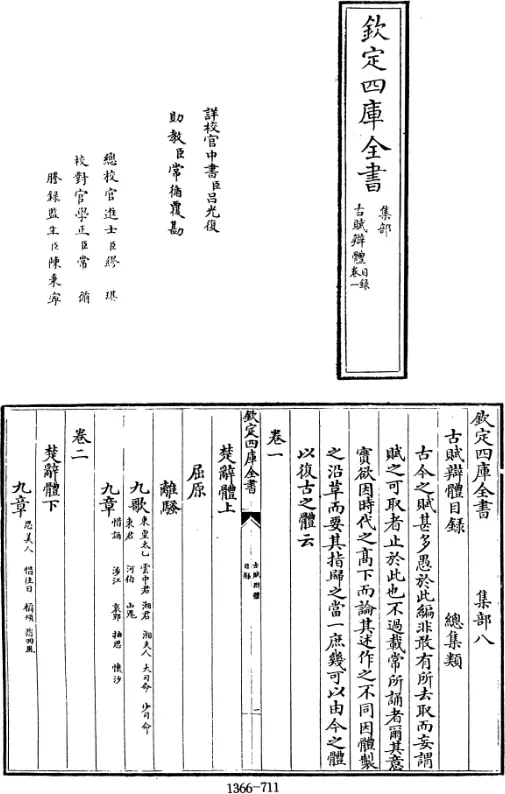 欽定四庫全書
集部
古賦辯體
目録
卷一
詳校官中書臣呂光復
助教臣常循覆勘
總校官進士臣繆琪
校對官學正臣常循
謄録監生臣陳秉寧
欽定四庫全書 集部八
古賦辯體目録 總集類
古今之賦甚多愚於此編非敢有所去取而妄謂
賦之可取者止於此也不過載常所誦者爾其意
實欲因時代之高下而論其述作之不同因體製
之沿革而要其指歸之當一庶幾可以由今之體
以復古之體云
卷一
欽定四庫全書
古賦辯體
目録
一
楚辭體上
屈原
離騷
九歌 東皇太乙 雲中君 湘君 湘夫人 大司命 少司命
東君 河伯 山鬼
九章 惜誦 涉江 哀郢 抽思 懷沙
卷二
楚辭體下
九章 思美人 惜往日 橘頌 悲回風
1366-711